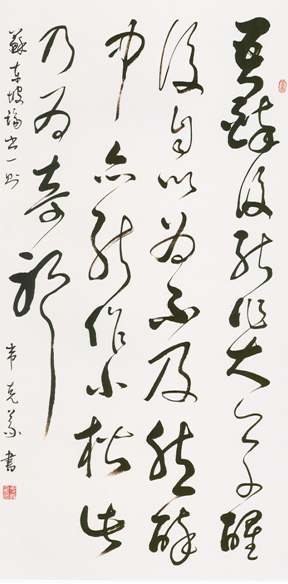 吾醉後能作大草醒
後自以為不及然醉
中亦能作小楷此
乃為奇耳
蘇東坡論書一則
韋克義書